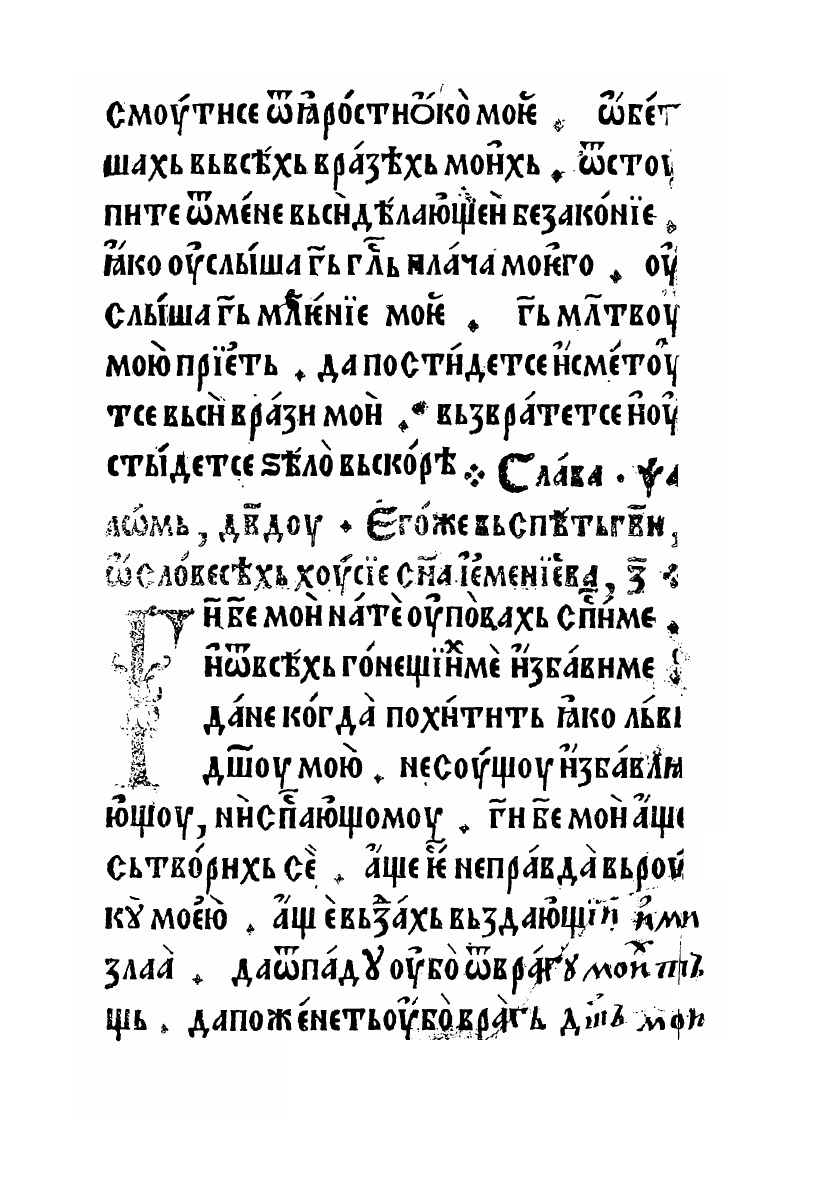 смоу́тисе ѿꙗро́сти ѻ҆ко̀ моѥ҆ . ѡ҆бе́т
шахь вьвсѣ́хь вра́зѣхь мои҆хь . ѿстоу
пите ѿме́не вьсѝ дѣ́лающеи безако́нїе .
ꙗ҆ко оу҆слы́ша г҃ь гл҃ь пла́ча моѥ҆го . оу҆
слы́ша г҃ь млѥ́нїе моѥ҆ . г҃ь мл҃твоу
мою̀ прїе҆ть . да пости́детсе и҆смето́у
тсе вьсѝ вра́зи моѝ . вьзвра́тетсе и҆оу
сты́детсе ѕѣ́ло̀ вьско́рѣ ⁘ Сла́ва . ѱа
лѡ́мь , дв҃доу . Его́же вьспѣ́ть г҃ви ,
ѡ҆ словесѣ́хь хоу́сїе сн҃а їе҆мені́ева , з҃ ⁘
Г҃и б҃е моѝ на́тѐ оу҆по̀вахь сп҃и́ме .
и҆ѿвсѣ́хь го́нещїи́хмѐ и҆зба́виме
да́не когда̀ похи́тить ꙗ҆ко ль́вь
дш҃оу мою̀ . несоу́щоу и҆зба́влꙗ
ю́щоу , нѝсп҃аю́щомоу . г҃и б҃е моѝ а҆́ще
сьтво́рихь сѐ . а҆́ще ѥ҆ непра́вда̀ вьроу́
кꙋ̀ моею̀ . а҆́ще вьзда́хь вьздаю́щїи́ и҆ми
злаа̀ . даѿпа́дꙋ оу҆бо̀ ѿвра́гꙋ мои҆х тъ
щь . дапоже́неть оу҆бо̀ вра̀гь дш҃ъ мои